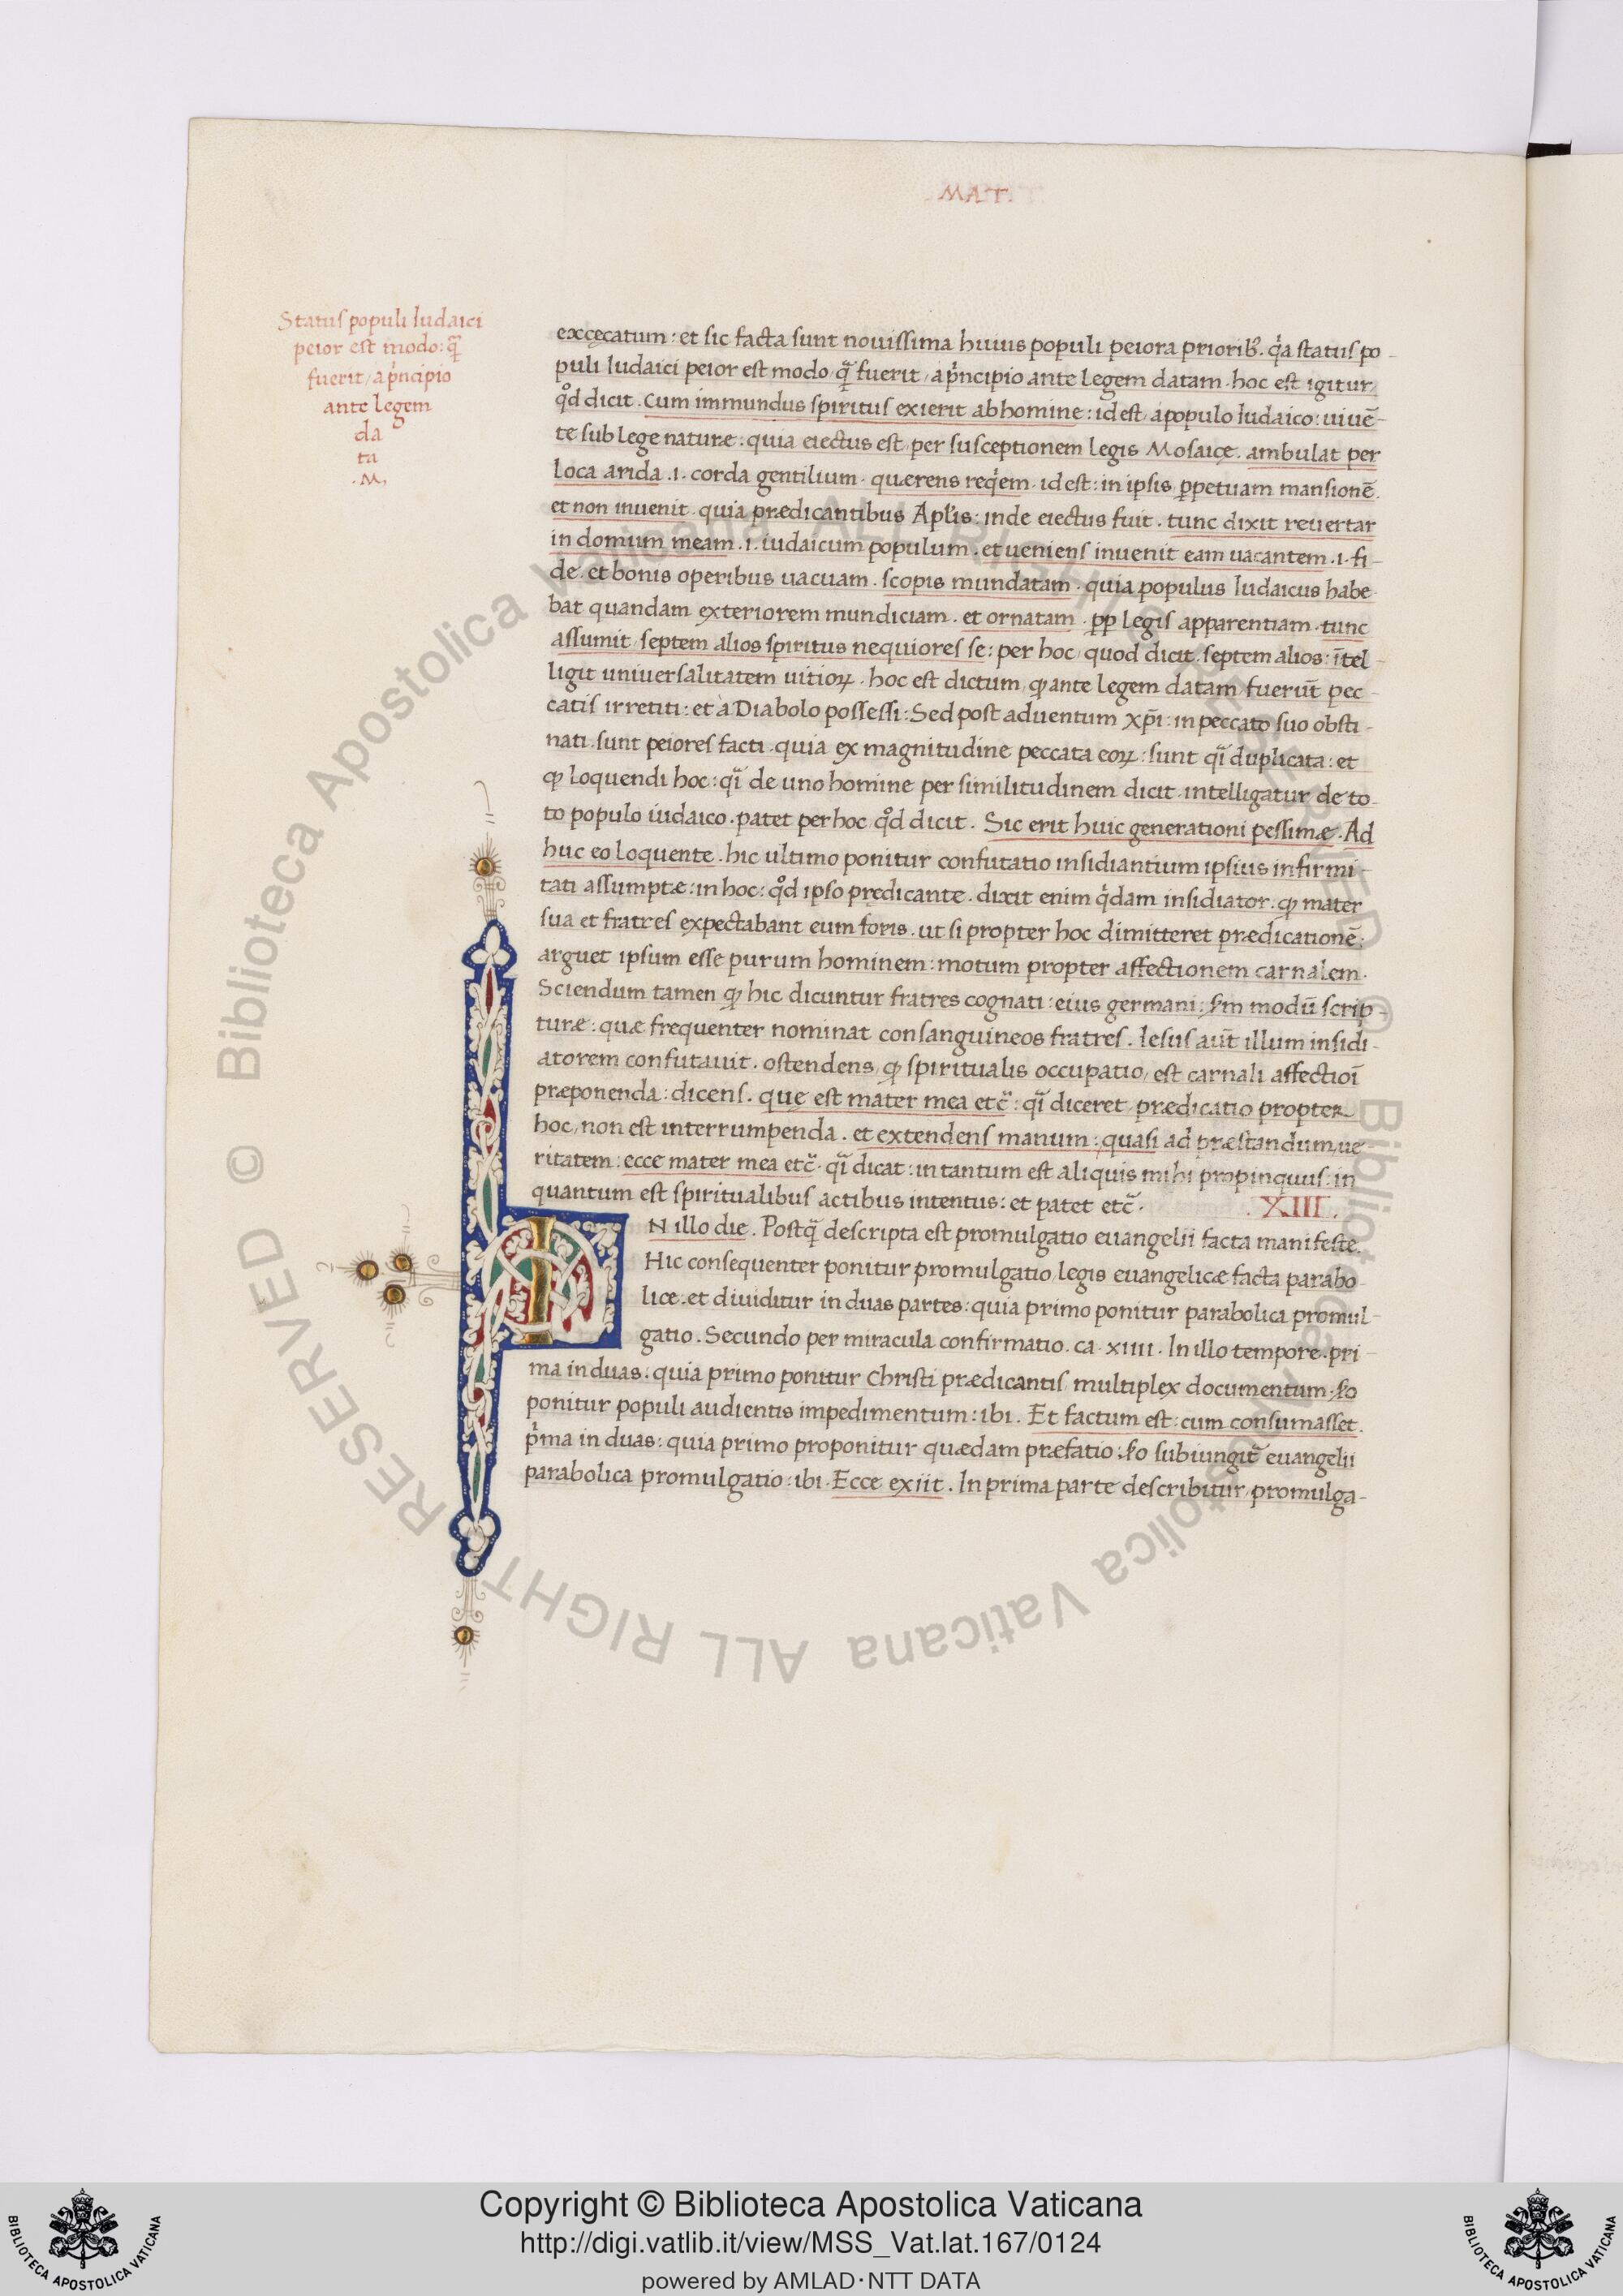 MAT.
Status populi Iudaici
peior est modo: q̃
fuerit/ a pͥncipio
ante legem
da
ta
.M.
excęcatum: et sic facta sunt nouissima huius populi peiora priorib᷒. qͥa status po-
puli Iudaici peior est modo/ q̃ fuerit/ a pͥncipio ante legem datam. hoc est igitur
qͦd dicit. Cum immundus spiritus exierit ab homine: id est a populo Iudaico: uiuē-
te sub lege naturæ: quia eiectus est per susceptionem legis Mosaicę. ambulat per
loca arida .i. corda gentilium. quærens reqͥem. id est: in ipsis ꝑpetuam mansionē.
et non inuenit. quia prædicantibus Apl̓is: inde eiectus fuit. tunc dixit reuertar
in domum meam .i. iudaicum populum. et ueniens inuenit eam uacantem .i. fi-
de. et bonis operibus uacuam. scopis mundatam. quia populus Iudaicus habe-
bat quandam exteriorem mundiciam. et ornatam. ꝓꝑ legis apparentiam. tunc
assumit septem alios spiritus nequiores se: per hoc/ quod dicit. septem alios: ītel-
ligit uniuersalitatem uitioꝝ. hoc est dictum, ꝙ ante legem datam fuerūt pec-
catis irretiti: et à Diabolo possessi: Sed post aduentum Xp̄i: in peccato suo obsti-
nati. sunt peiores facti. quia ex magnitudine peccata eoꝝ: sunt qͣi duplicata: et
ꝙ loquendi hoc: qͣi de uno homine per similitudinem dicit. intelligatur de to-
to populo iudaico. patet per hoc qͦd dicit. Sic erit huic generationi pessimæ. Ad
huc eo loquente. hic ultimo ponitur confutatio insidiantium ipsius infirmi-
tati assumptæ: in hoc: qͦd ipso prędicante. dixit enim qͥdam insidiator: ꝙ mater
sua et fratres expectabant eum foris. ut si propter hoc dimitteret prædicationē:
arguet ipsum esse purum hominem: motum propter affectionem carnalem.
Sciendum tamen ꝙ hic dicuntur fratres cognati: eius germani: ẜm modū scrip-
turæ: quæ frequenter nominat consanguineos fratres. Iesus aūt illum insidi-
atorem confutauit. ostendens, ꝙ spiritualis occupatio/ est carnali affectioī
præponenda: dicens. quę est mater mea etc̃: qͣi diceret prædicatio propter
hoc, non est interrumpenda. et extendens manum: quasi ad præstandum ue
ritatem: ecce mater mea etc̃. qͣi dicat: in tantum est aliquis mihi propinquus: in
quantum est spiritualibus actibus intentus: et patet etc̃.
.XIII.
IN illo die. Postq̃ descripta est promulgatio euangelii facta manifeste.
Hic consequenter ponitur promulgatio legis euangelicæ facta parabo-
lice. et diuiditur in duas partes: quia primo ponitur parabolica promul-
gatio. Secundo per miracula confirmatio. ca. xiiii. In illo tempore. pri-
ma in duas: quia primo ponitur Christi prædicantis multiplex documentum. ẜo
ponitur populi audientis impedimentum: ibi. Et factum est: cum consumasset.
pͥma in duas: quia primo proponitur quædam præfatio: ẜo subiungit᷑ euangelii
parabolica promulgatio: ibi. Ecce exiit. In prima parte describitur/ promulga-
© Biblioteca Apostolica Vaticana ALL RIGHTS RESERVED © Biblioteca Apostolica Vaticana ALL RIGHTS RESERVED
Copyright © Biblioteca Apostolica Vaticana
http://digi.vatlib.it/view/MSS_Vat.lat.167/0124
powered by AMLAD·NTT DATA
BIBLIOTECA APOSTOLICA VATICANA
BIBLIOTECA APOSTOLICA VATICANA